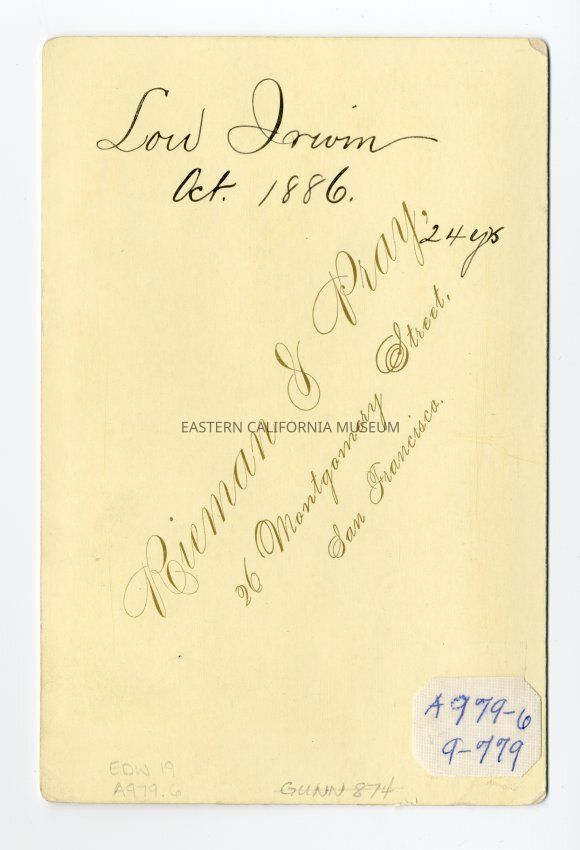 Lou Irwin
Oct. 1886.
24 yrs
Rieman & Pray,
26 Montgomery Street,
San Francisco.
EASTERN CALIFORNIA MUSEUM
A979-6
9-779
EDW 19
A979.6
GUNN 874